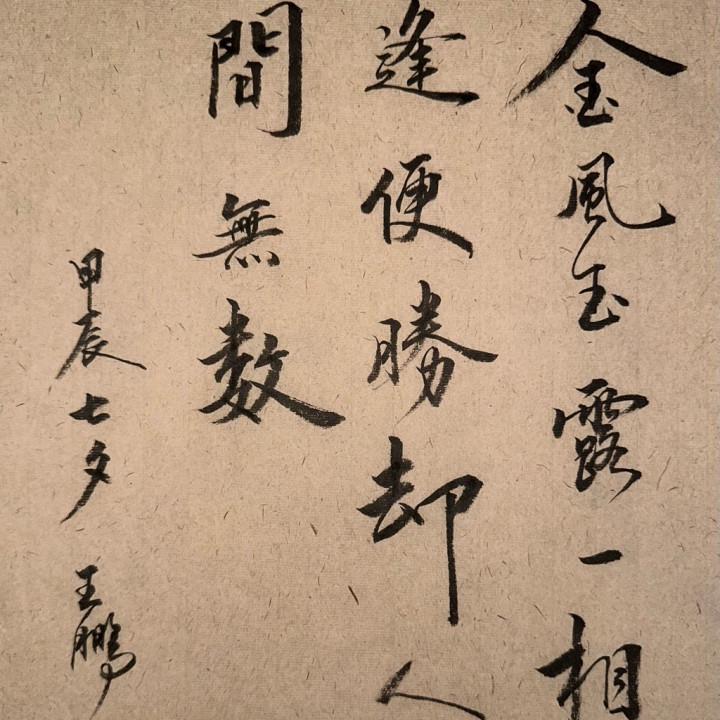 金風玉露一相
逢便勝却人
間無數
甲辰七夕 王鵬